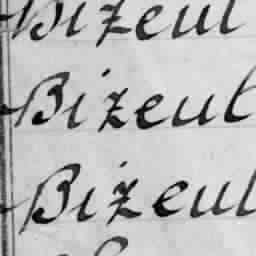 Bizeul
Bizeul
Bizeul